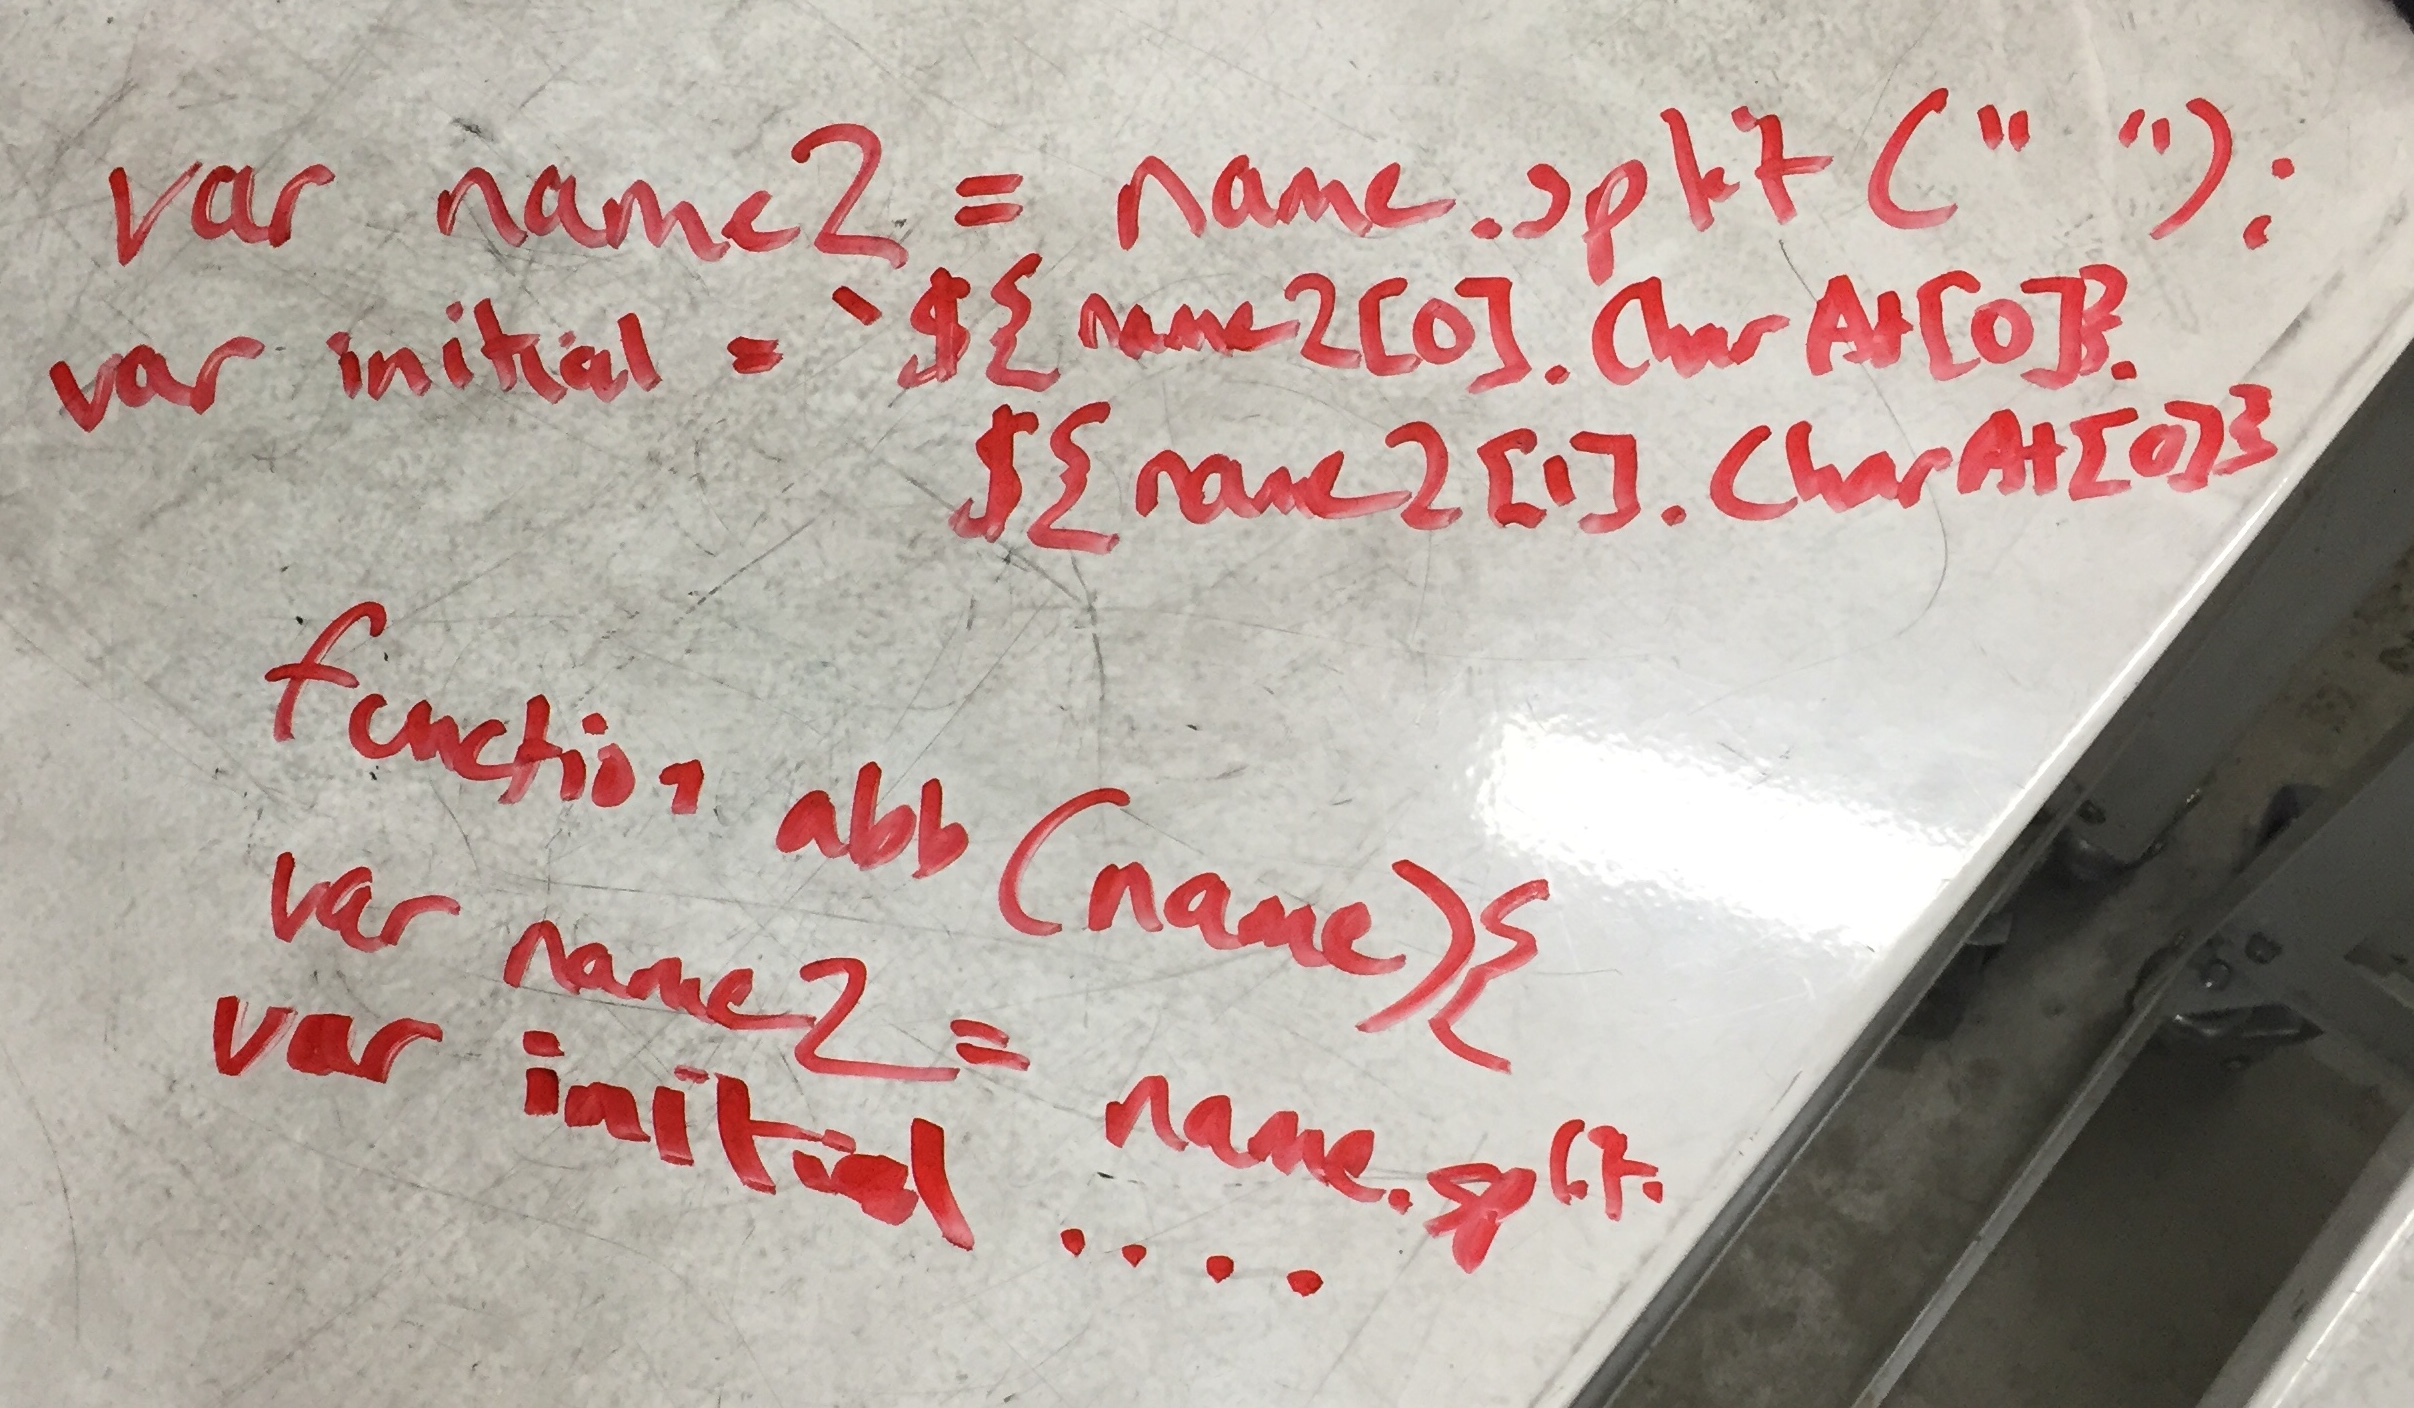 var name2 = name.split(" ");
var initial = `${name2[0].CharAt[0]}.
${name2[1].CharAt[0]}
function abb (name){
var name2 = name.split.
var initial ....